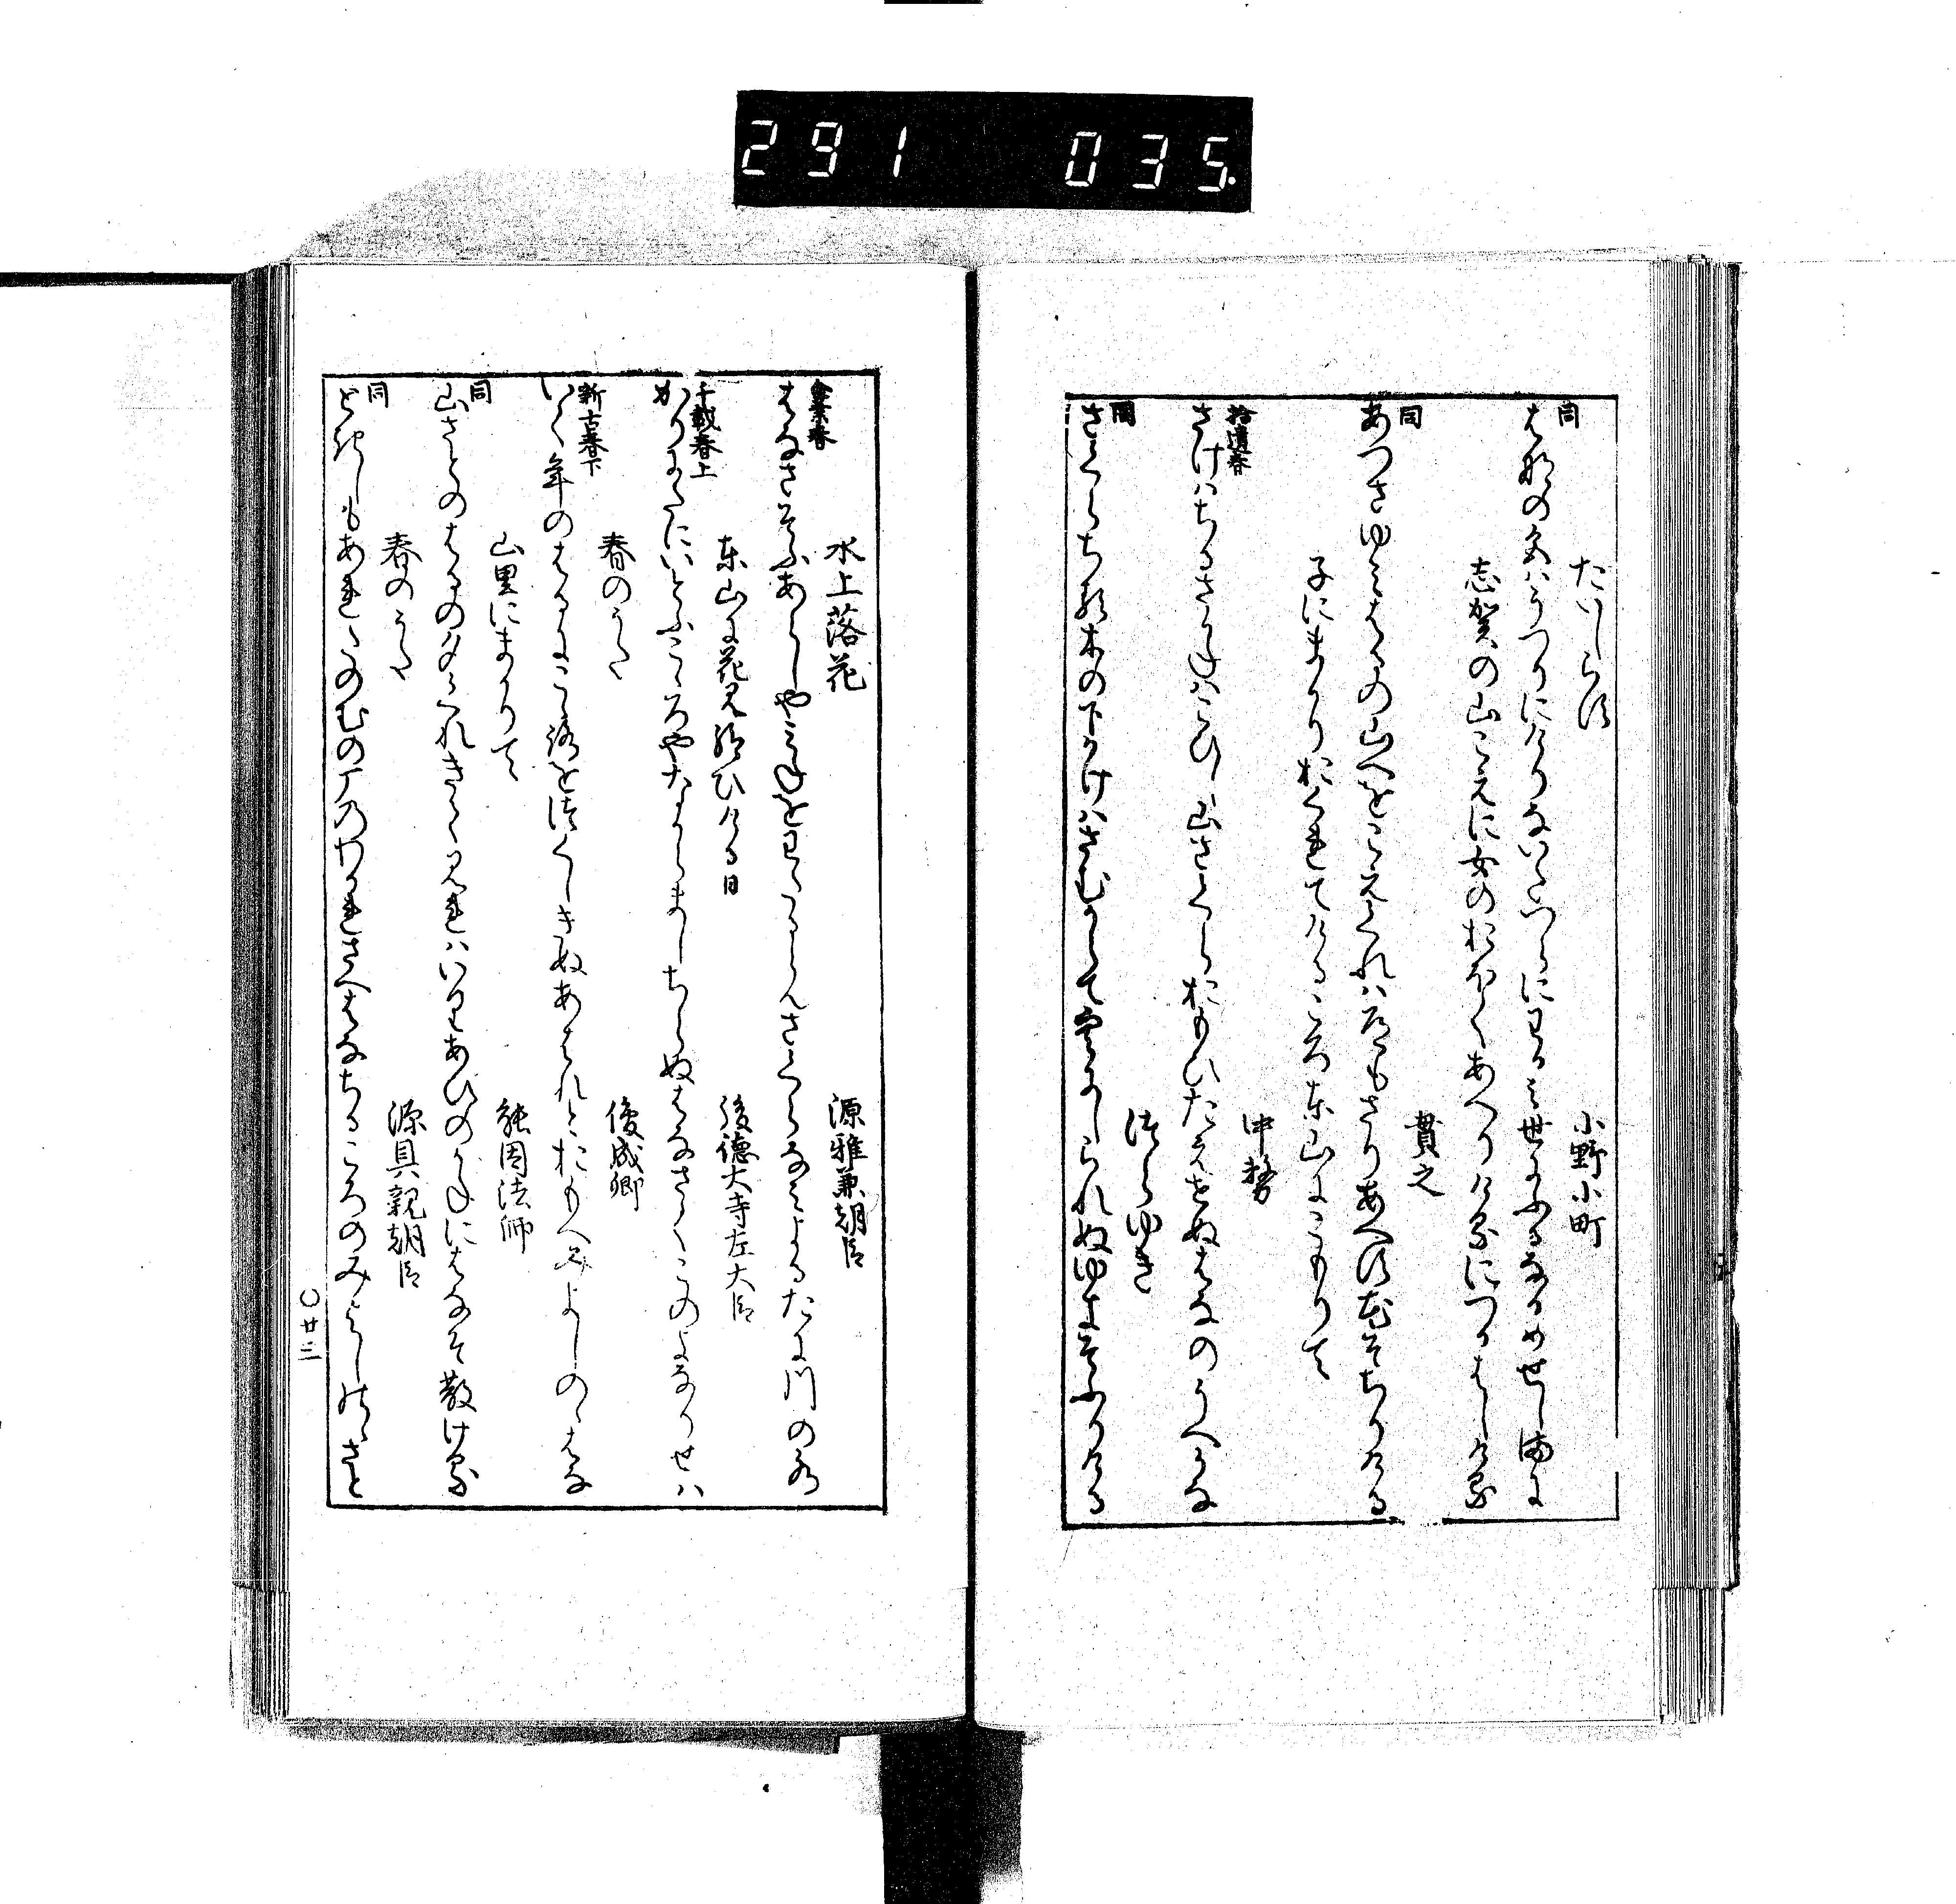 291 035.
たいしらす 小野小町
同
はなの色はうつりにけりないたつらにわかみ世にふるなかめせしまに
志賀の山こえに女のおほくあへりけるにつかはしける 貫之
同
あつさゆみはるの山へをこえくれは道もさりあへす花そちりける
子にまかりおくれてける比東山にこもりて 中務
拾遺春
さけはちるさかねはこひし山さくらおもひたえせぬはなのうへかな
つらゆき
同
さくらちる木の下かけはさむからて空にしられぬゆきそふりける
水上落花 源雅兼朝臣
金葉春
はなさそふあらしやみねをわたるらんさくらなみよるたに川の水
東山に花見給ひける日 後徳大寺左大臣
千載春上
かりにたにいとふこゝろやなからましちらぬはなさくこのよなりせは
春のうた 俊成卿
新古春下
いく年のはるにこゝろをつくしきぬあはれとおもへみよしのゝはな
山里にまかりて 能因法師
同
山さとのはるの夕くれきてみれはいりあひのかねにはなそ散ける
春のうた 源具親朝臣
同
ときしもあれたのむの厂のわかれさへはなちるころのみよしのゝさと
〇廿三